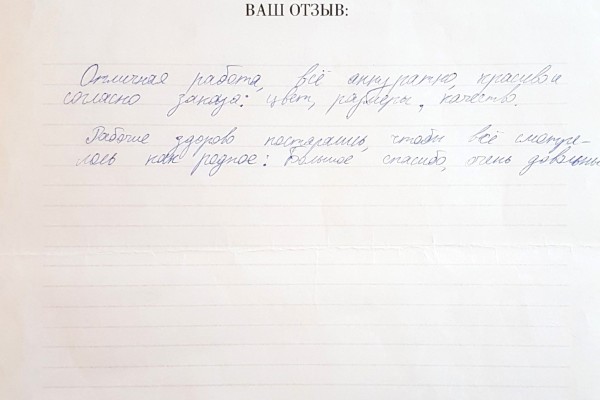 ВАШ ОТЗЫВ:
Отличная работа, всё аккуратно, красиво и
согласно заказа: цвет, размеры, качество.
Рабочие здорово постарались, чтобы всё смотре-
лось как родное! Большое спасибо, очень довольны